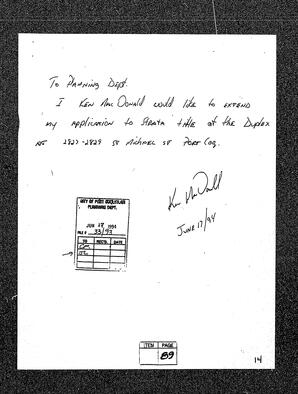 To Planning Dept.
I Ken MacDonald would like to extend
my application to strata title at the Duplex
at 2827-2829 St Michael St Port Coq.
Ken MacDonald
June 17/94
CITY OF PORT COQUITLAM
PLANNING DEPT.
JUN 17 1994
FILE #
TO REC'D. DATE
ITEM PAGE
89
14